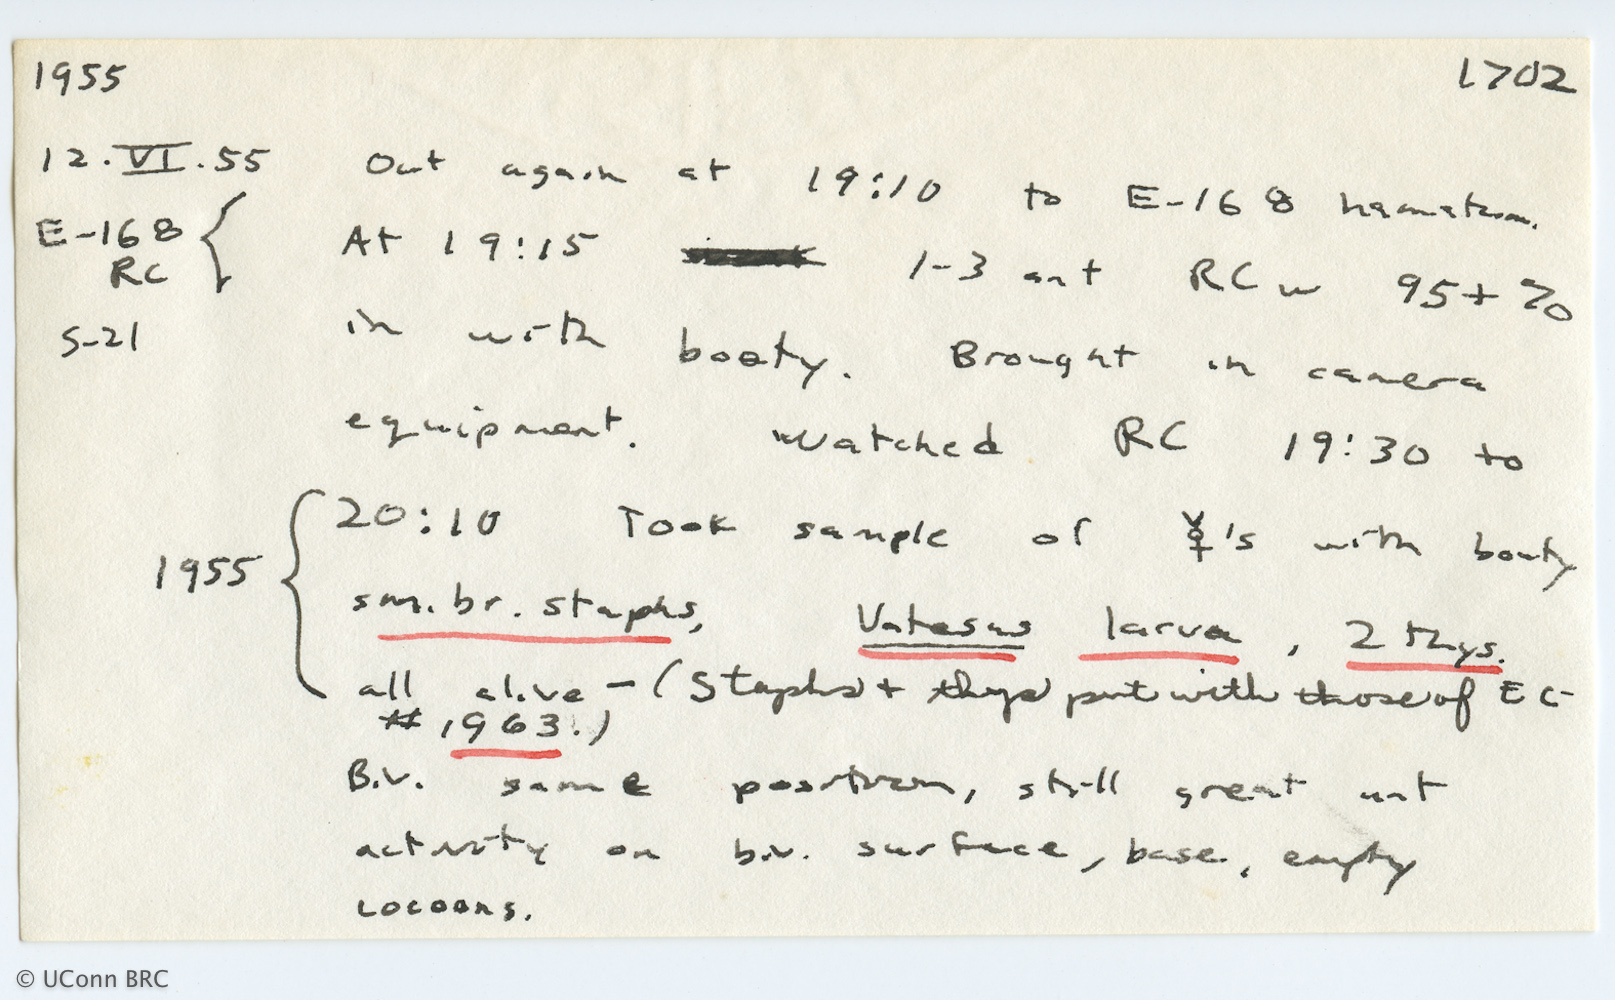 1955 1702
12.VI.55 Out again at 19:10 to E-168 hematom.
E-168 At 19:15 1-3 ant RC w 95+ %
RC
S-21 in with booty. Brought in camera
equipment. Watched RC 19:30 to
20:10 Took sample of ☿'s with booty
1955 sm. br. staphs, Vatesus larva, 2 thys.
all alive - (Staphs + thys put with those of EC-
# 1963.)
B.v. same position, still great ant
activity on b.v. surface, base, empty
cocoons.
© UConn BRC